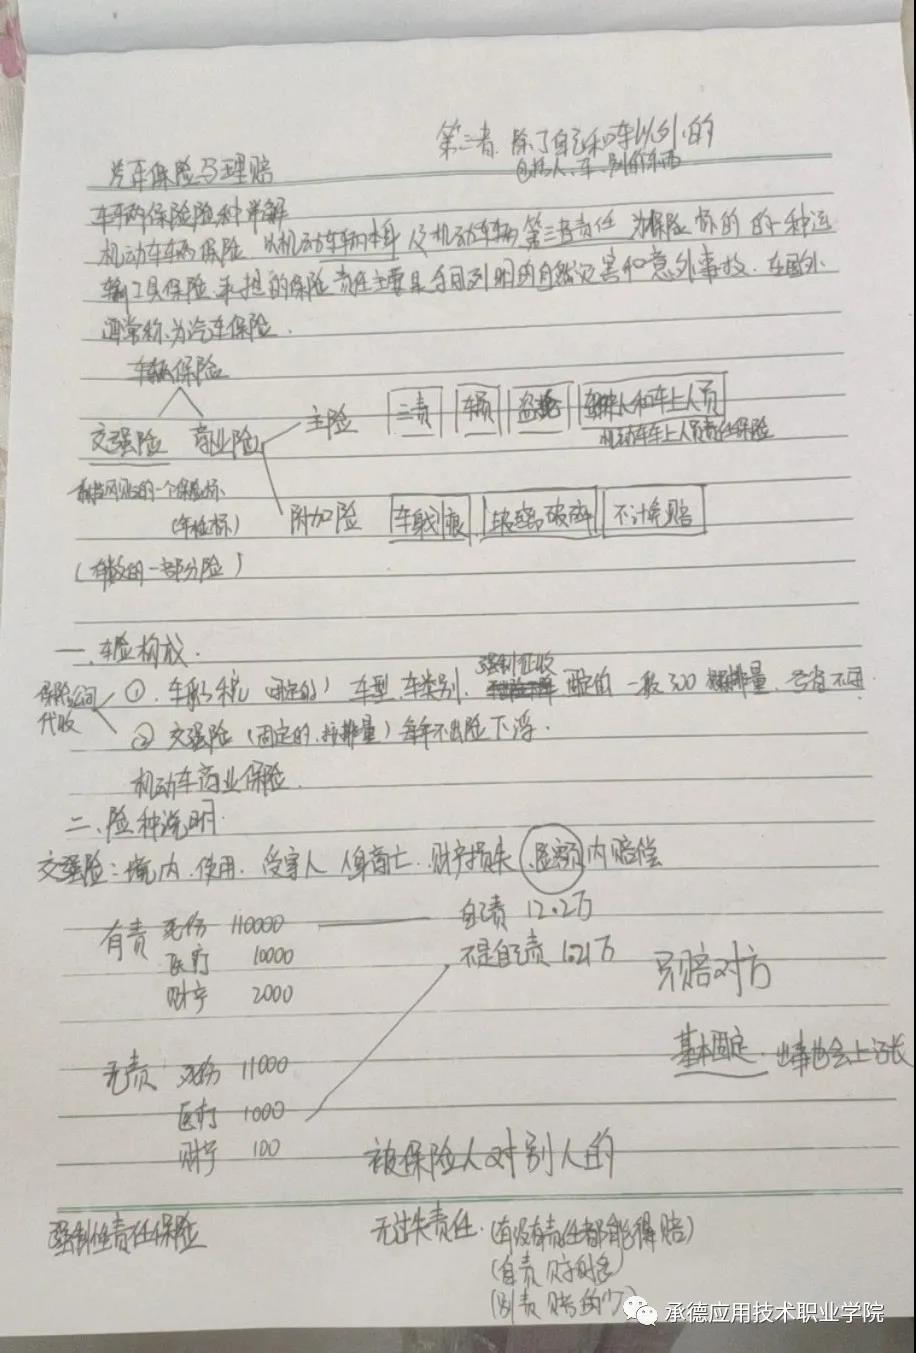 第三者 除了自己和车以外的
包括人、车、别的东西
汽车保险与理赔
车辆保险险种详解
机动车车辆保险 以机动车辆本身及机动车辆第三者责任 为保险标的的一种运
输工具保险 承担的保险责任主要是合同列明的自然灾害和意外事故. 在国外
通常称为汽车保险.
车辆保险
交强险 商业险 主险 三责 车损 盗抢 驾驶人和车上人员
机动车车上人员责任保险
的一个保险标
(年检标)
附加险 车身划痕 玻璃破碎 不计免赔
(有效的一部分险)
一.车险构成.
保险公司代收
① 车船税 (固定的) 车型.车类别. 强制征收 固定值 一般300 排量. 各省不同
② 交强险 (固定的.按排量) 每年不出险下浮.
机动车商业保险.
二、险种说明.
交强险:境内.使用.受害人 人身商亡.财产损失 限额内赔偿
有责 死伤 110000 自己责 12.2万
医疗 10000 不是自己责 1.21万
财产 2000 只赔对方
基本固定. 出事也会上涨
无责 死伤 11000
医疗 1000
财产 100
被保险人对别人的
强制性责任保险
无过失责任.(有没有责任都能得赔)
(自责 赔的多)
(别责 赔的少)
承德应用技术职业学院